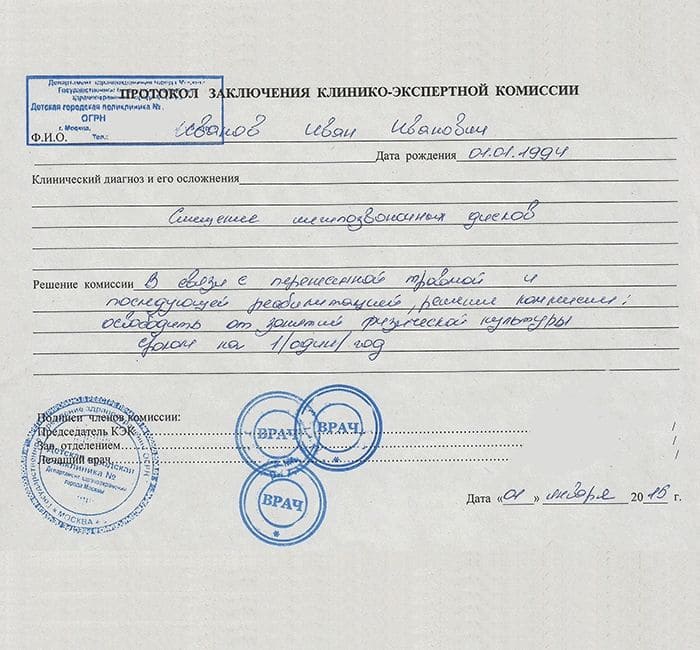 Департамент здравоохранения города Москвы
Государственное
здравоохранения
Детская городская поликлиника №
ОГРН
г. Москва,
Тел.:
ПРОТОКОЛ ЗАКЛЮЧЕНИЯ КЛИНИКО-ЭКСПЕРТНОЙ КОМИССИИ
Ф.И.О. Иванов Иван Иванович
Дата рождения 01.01.1994
Клинический диагноз и его осложнения
Смещение межпозвоночных дисков
Решение комиссии В связи с перенесенной травмой и
последующей реабилитацией, решение комиссии:
освободить от занятий физической культуры
сроком на 1/один/ год
Подписи членов комиссии:
Председатель КЭК /
Зав. отделением /
Лечащий врач /
ВРАЧ
ВРАЧ
ВРАЧ
Детской городской
поликлиника №
Департамент здравоохранения
города Москвы
* МОСКВА *
Дата «01» января 2015 г.